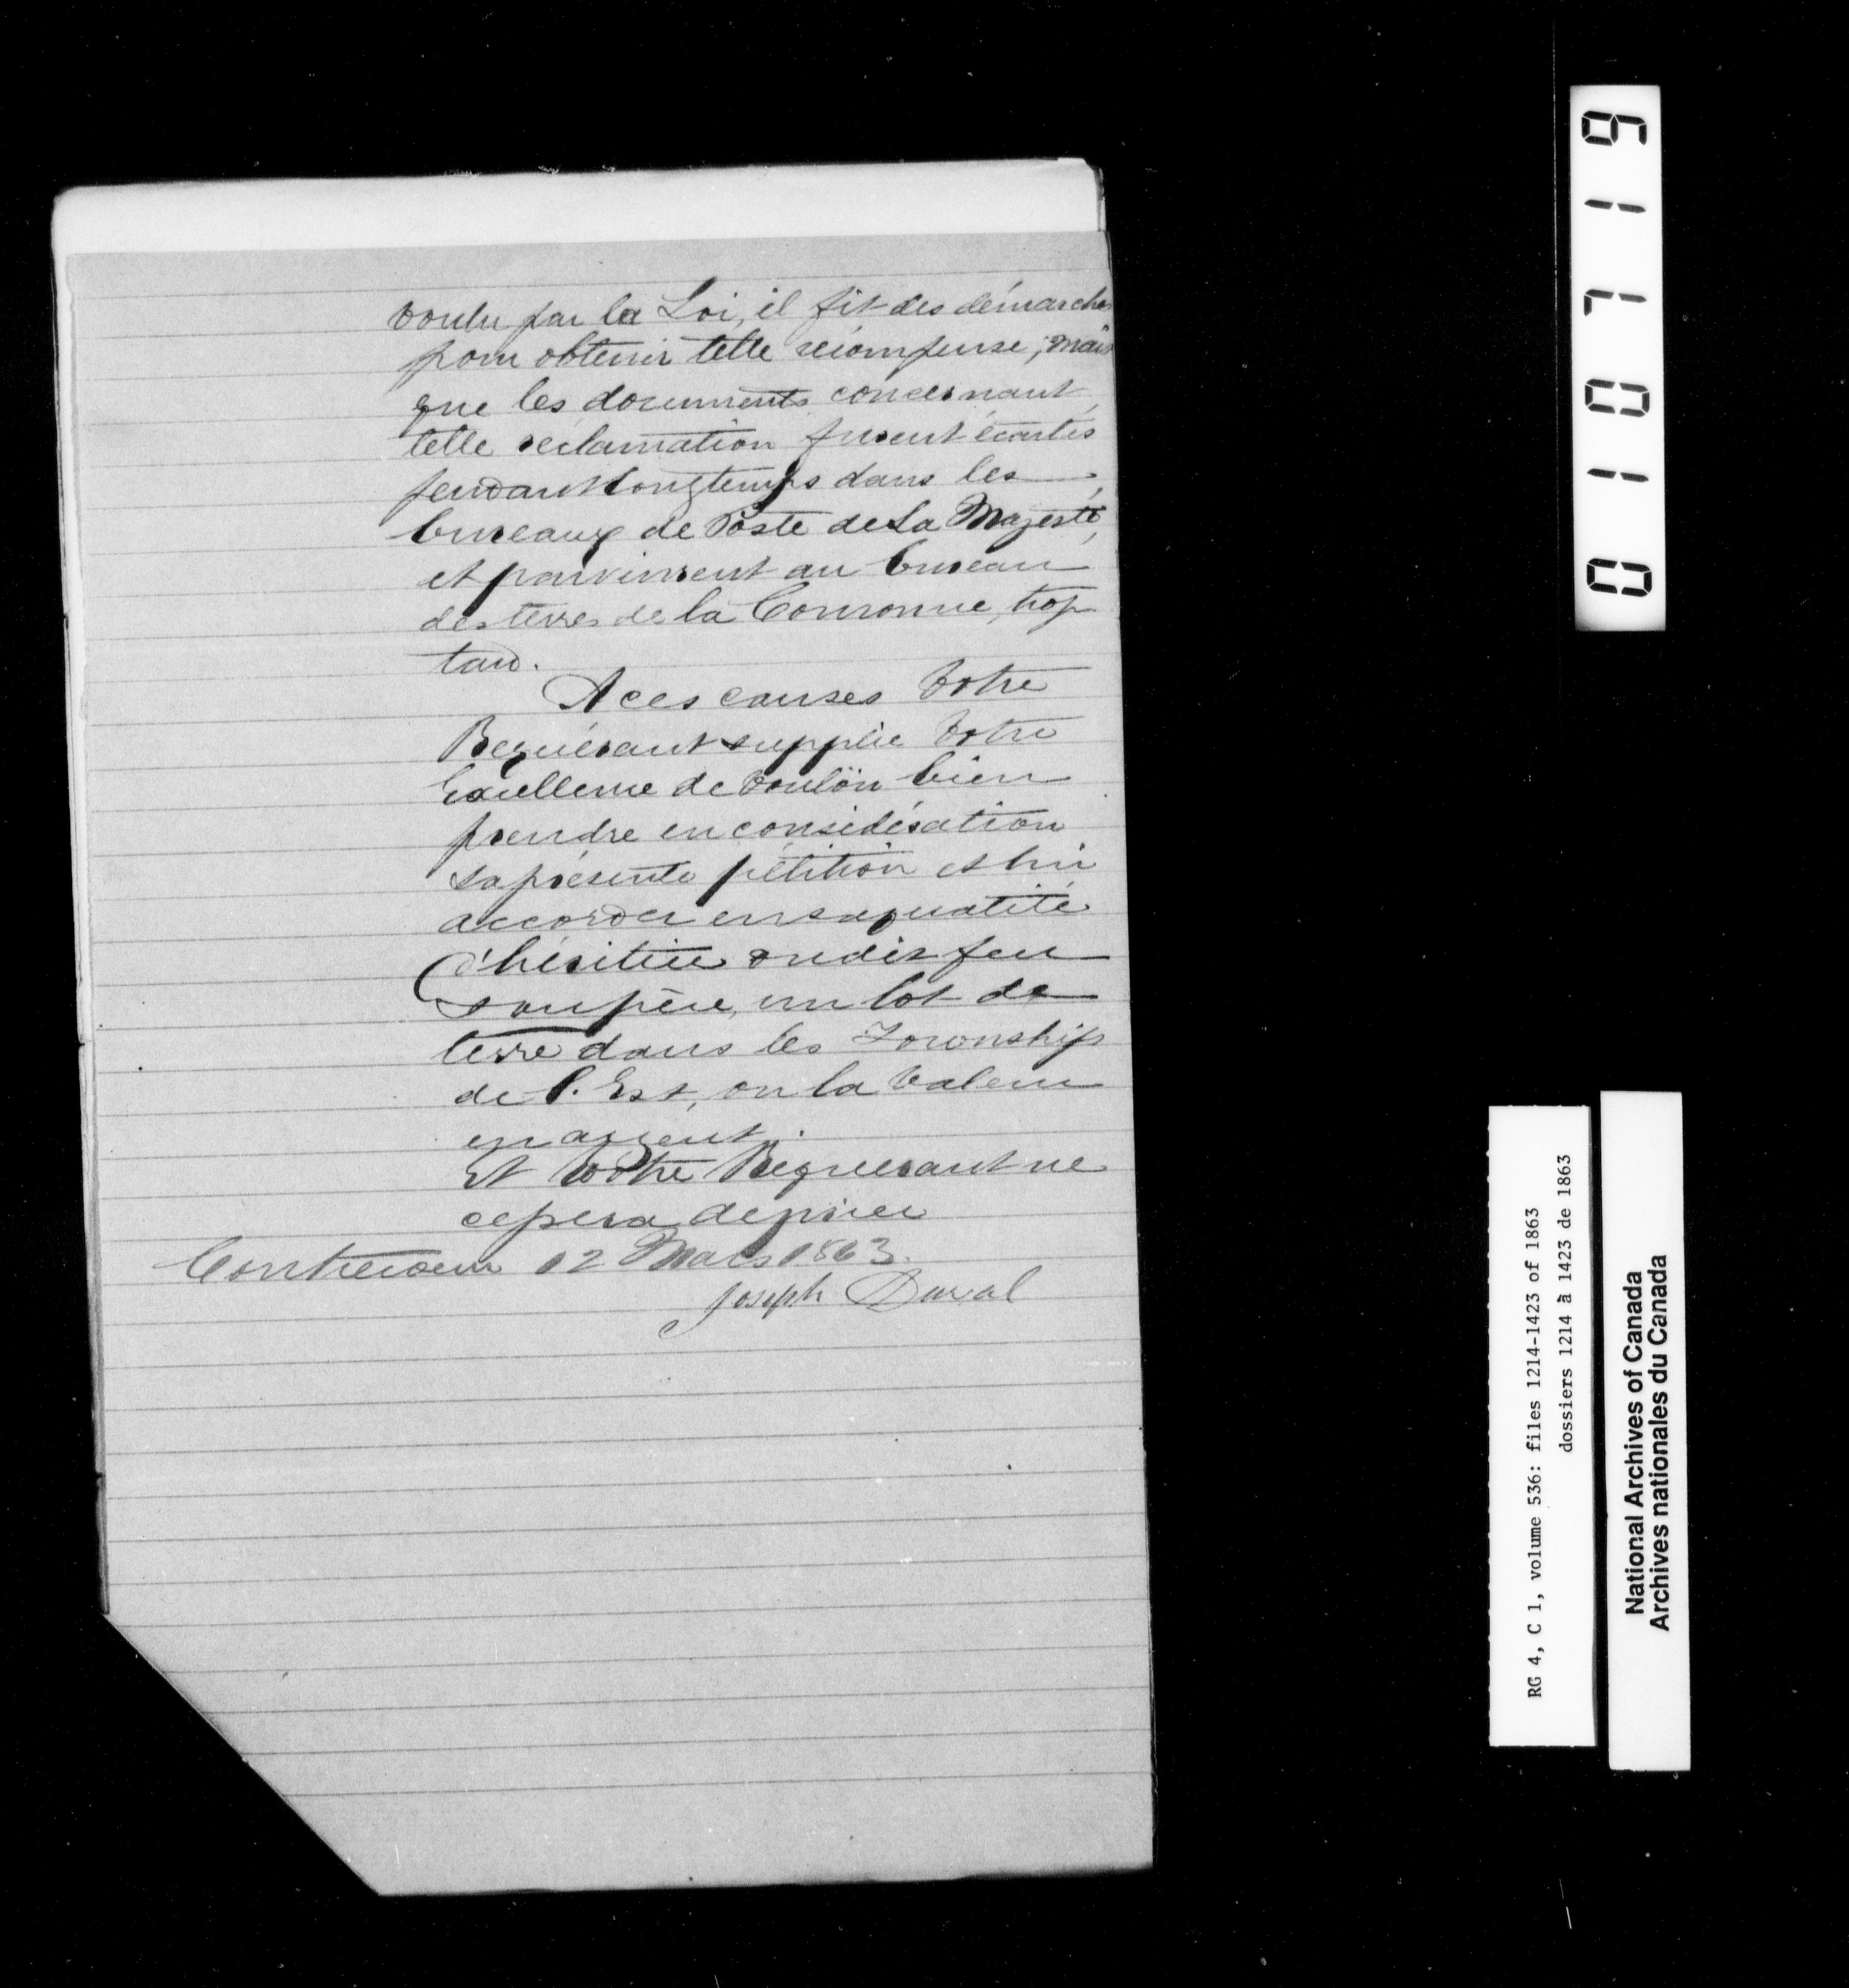 voulu par la Loi, il fit des démarches
pour obtenir telle récompense; mais
que les documents concernant
telle réclamation furent écartés
pendant longtemps dans les
bureaux de Poste de Sa Majesté,
et parvinrent au bureau
des terres de la Couronne, trop
tard.
A ces causes Votre
Requérant supplie Votre
Excellence de vouloir bien
prendre en considération
sa présente pétition et lui
accorder en sa qualité
d'héritier du dit feu
son père, un lot de
terre dans les Townships
de l'Est, ou la valeur
en argent.
Et Votre Requerant ne
cessera de prier
Contrecoeur 12 Mars 1863.
Joseph Duval
010719
RG 4, C 1, volume 536: files 1214-1423 of 1863
dossiers 1214 à 1423 de 1863
National Archives of Canada
Archives nationales du Canada